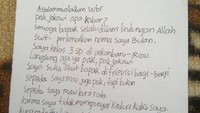 Assalamualaikum Wbr
pak Jokowi apa kabar?
Semoga bapak selalu dalam lindungan Allah
swt. perkenalkan nama saya Bulan.
Saya kelas 3 SD di pekanbaru-Riau
Langsung aja ya pak, pak Jokowi
Saya suka lihat bapak di televisi bagi-bagi
Sepeda saya mau juga pak, tapi bukan
Sepeda saya mau kursi roda
karna saya tidak mempunyai kedua kaki